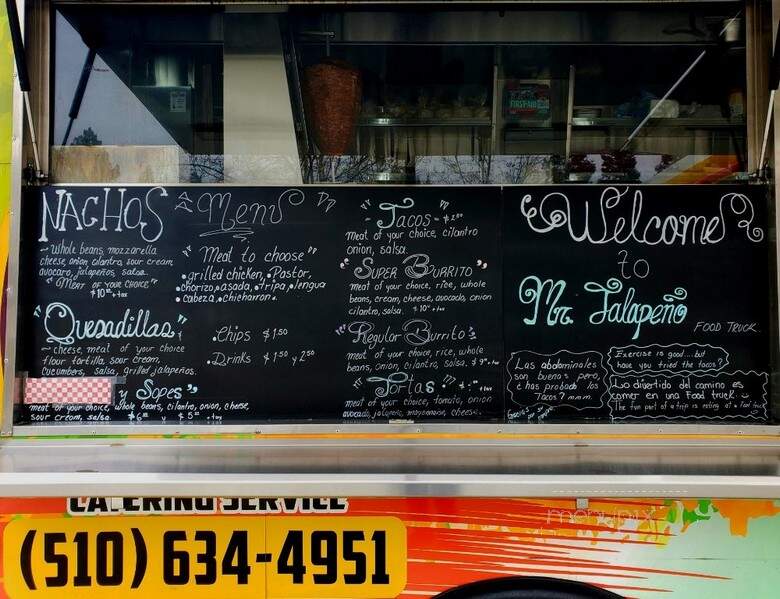 FIRST AID
NACHOS
~ Whole beans, mozzarella
cheese, onion cilantro, sour cream
avocaro, jalapeños, salsa.
"Meat of your choice"
$10 + tax
"Quesadillas"
~ cheese, meat of your choice
flour tortilla, sour cream,
cucumbers, salsa, grilled jalapeños.
y Sopes"
meat of your choice, whole beans, cilantro, onion, cheese,
sour cream, salsa.
Menú
"Meat to choose"
• grilled chicken, • Pastor,
chorizo, • asada, • tripa, • lengua
• cabeza, • chicharron.
• Chips $1.50
• Drinks $1.50 y 2.50
Tacos - $2.00
meat of your choice, cilantro
onion, salsa.
"Super Burrito"
meat of your choice, rice, whole
beans, cream, cheese, avocado, onion
cilantro, salsa. $10 + tax
"Regular Burrito"
meat of your choice, rice, whole
beans, onion, cilantro, salsa. $9 + tax
"Tortas"
meat of your choice, tomato, onion
avocado, jalapeño, mayonnaise, cheese.
Welcome
to
Mr. Jalapeño
FOOD TRUCK.
Las abdominales
son buenos pero,
¿has probado los
Tacos? mmm.
Exercise is good...but
have you tried the tacos?
Lo divertido del camino es
comer en una food truck.
The fun part of a trip is eating at a food truck
Gracias
CATERING SERVICE
(510) 634-4951
menupix